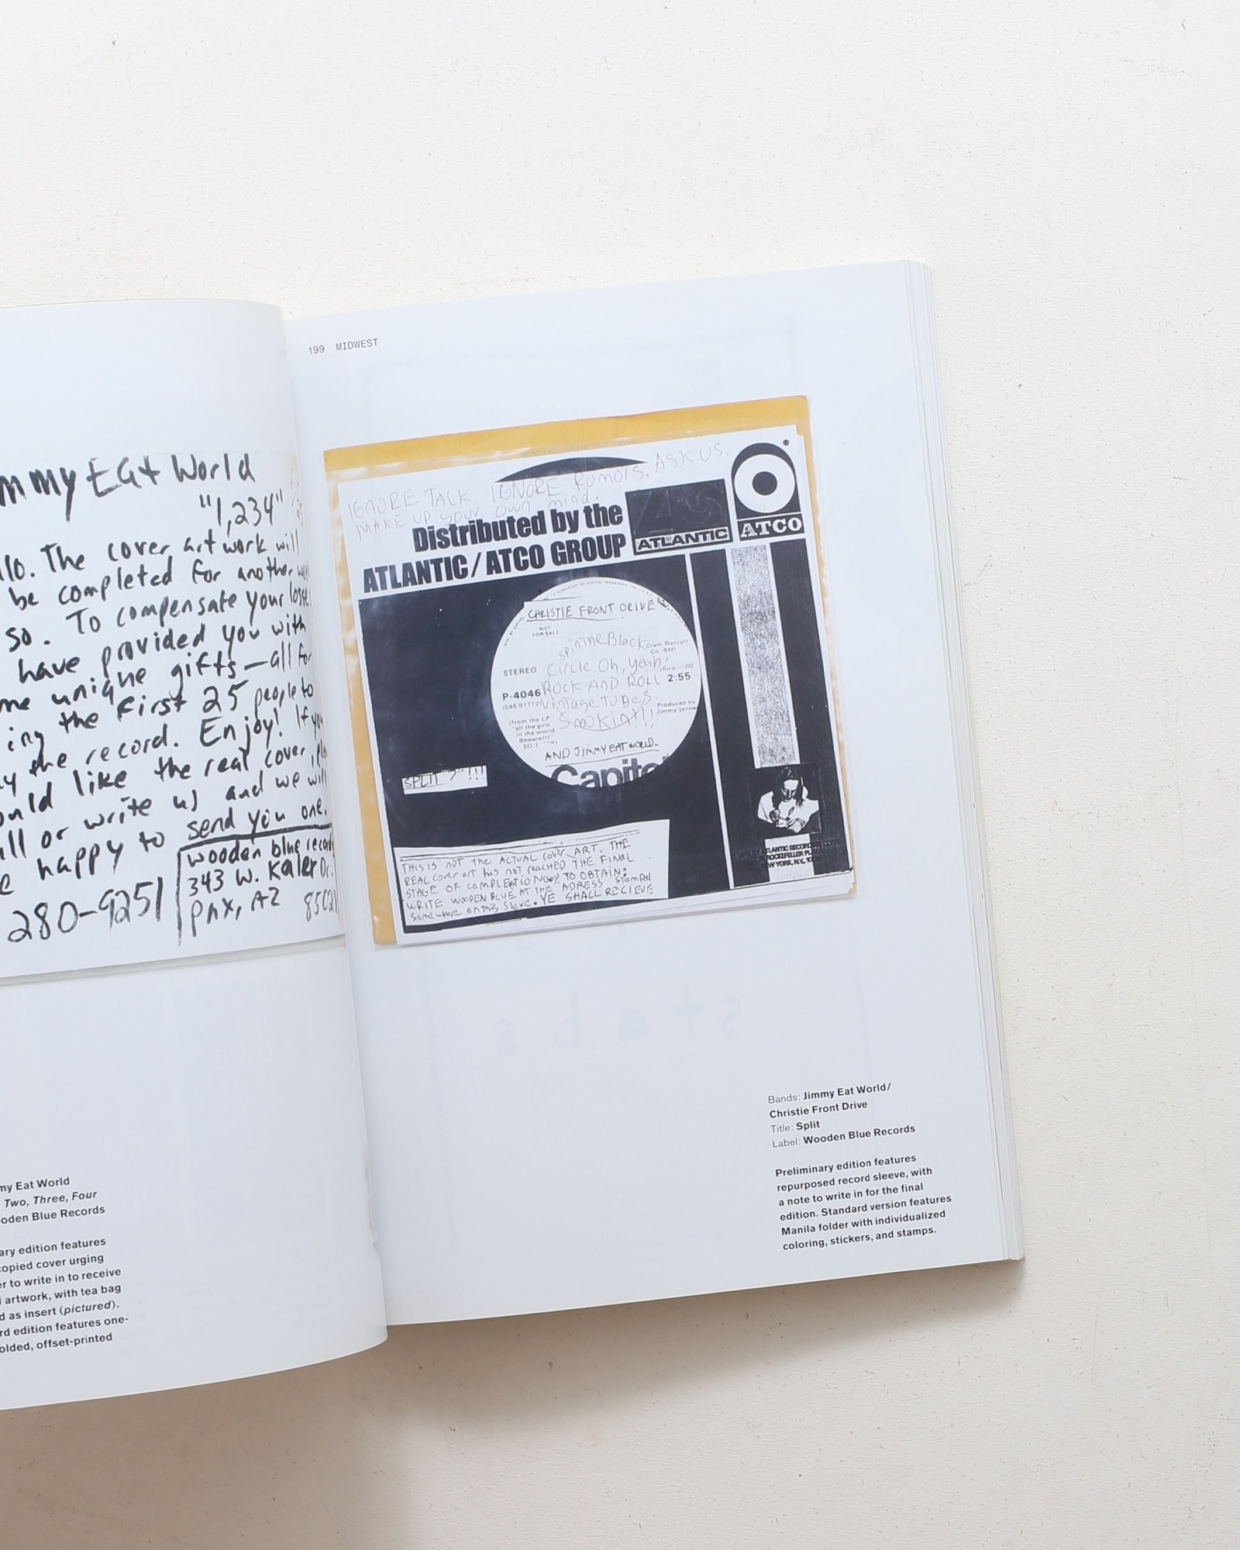 mmy Eat World
"1,234"
llo. The cover art work will
be completed for another
so. To compensate your loss
have provided you with
me unique gifts—all for
ing the first 25 people to
the record. Enjoy! If you
ould like the real cover,
all or write us and we will
e happy to send you one.
280-9251
wooden blue records
343 W. Kaler Dr.
PHX, AZ 85021
my Eat World
Two, Three, Four
oden Blue Records
ary edition features
copied cover urging
er to write in to receive
artwork, with tea bag
d as insert (pictured).
rd edition features one-
olded, offset-printed
199 MIDWEST
IGNORE TALK. IGNORE RUMORS. ASK US.
MAKE UP your own mind.
Distributed by the
ATLANTIC/ATCO GROUP
ATLANTIC
ATCO
CHRISTIE FRONT DRIVE
NOT
FOR SALE
STEREO
P-4046
2:55
spin The Black
Circle, Oh, yeah!
ROCK AND ROLL
Vintage TUBES.
Smokin!!
(from the LP
"all the girls
in the world
Beware!!!"
Produced by
AND JIMMY EAT WORLD.
Capitol
SPLIT 7"!!!
THIS IS NOT THE ACTUAL COVER ART. THE
REAL cover art has not reached THE FINAL
STAGE OF COMPLETION. TO OBTAIN:
WRITE WOODEN BLUE AT THE ADRESS stamped
somewhere on this sleve. YE SHALL RECIEVE
NEW YORK, N.Y.
Bands: Jimmy Eat World/
Christie Front Drive
Title: Split
Label: Wooden Blue Records
Preliminary edition features
repurposed record sleeve, with
a note to write in for the final
edition. Standard version features
Manila folder with individualized
coloring, stickers, and stamps.